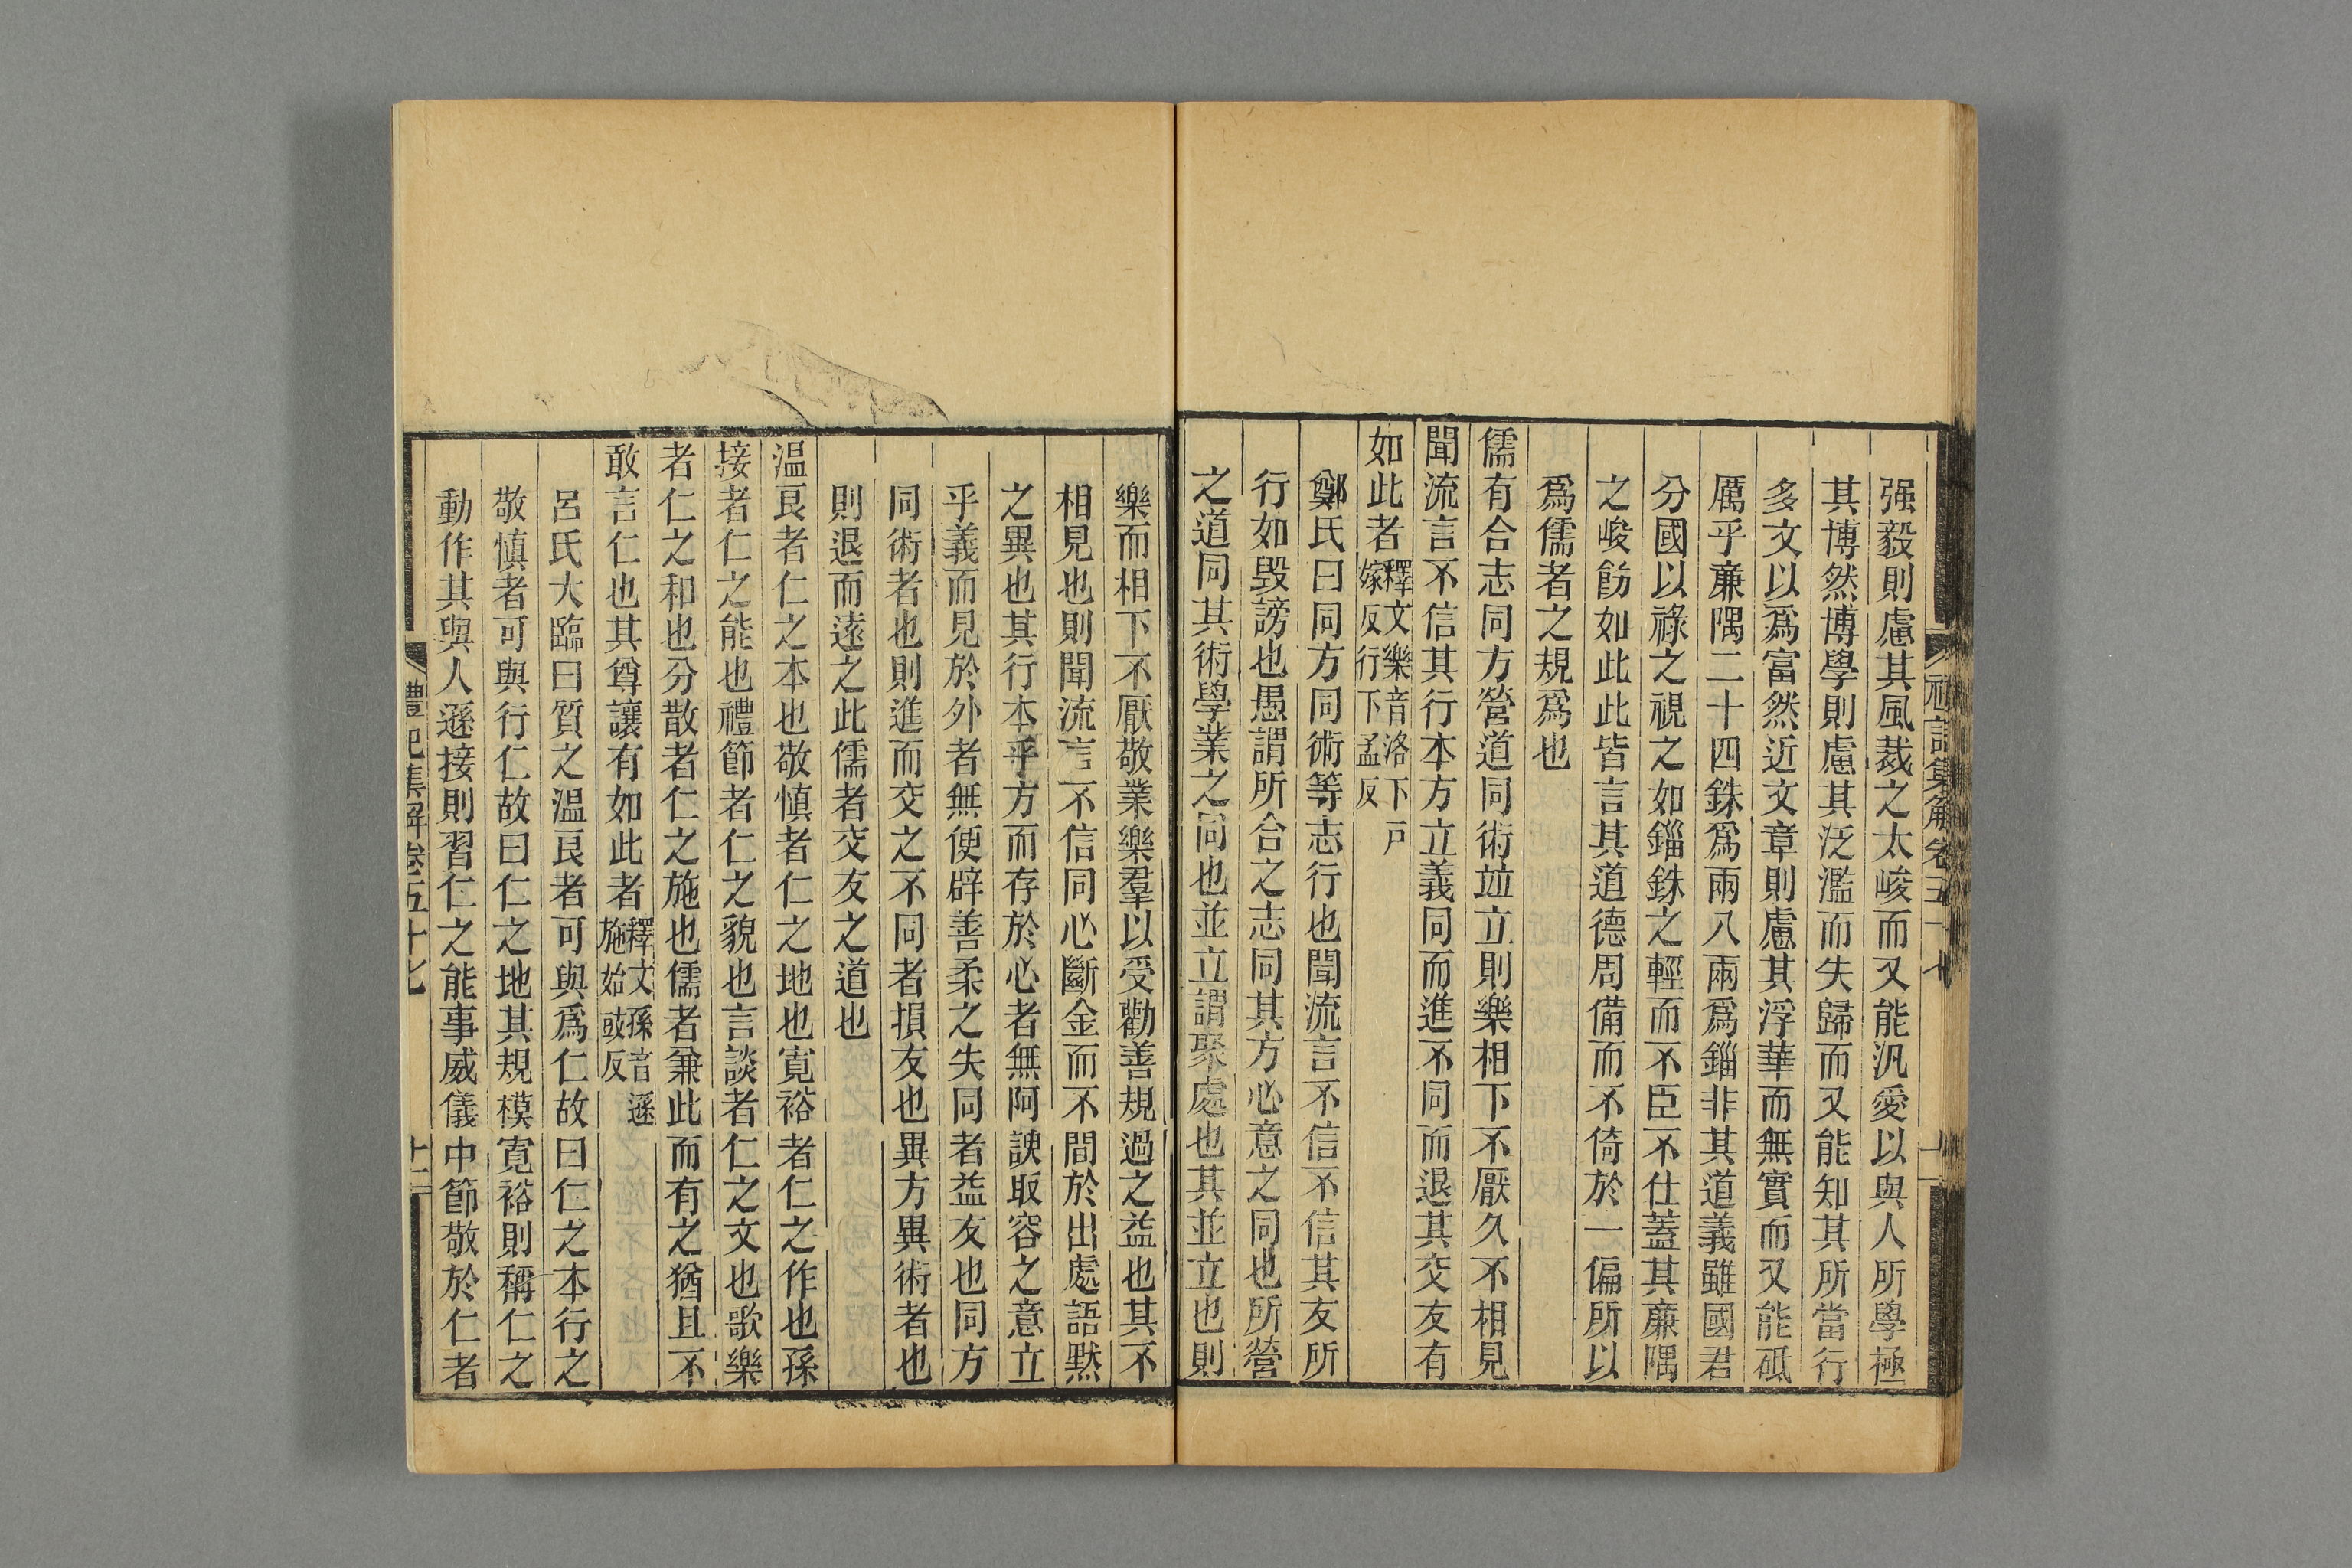 强毅則慮其風裁之太峻而又能汎愛以與人所學極
其博然博學則慮其泛濫而失歸而又能知其所當行
多文以爲富然近文章則慮其浮華而無實而又能砥
厲乎廉隅二十四銖爲兩八兩爲錙非其道義雖國君
分國以祿之視之如錙銖之輕而不臣不仕蓋其廉隅
之峻飭如此此皆言其道德周備而不倚於一偏所以
爲儒者之規爲也
儒有合志同方營道同術竝立則樂相下不厭久不相見
聞流言不信其行本方立義同而進不同而退其交友有
如此者釋文樂音洛下戶
嫁反行下孟反
鄭氏曰同方同術等志行也聞流言不信不信其友所
行如毀謗也愚謂所合之志同其方心意之同也所營
之道同其術學業之同也並立謂聚處也其並立也則
樂而相下不厭敬業樂羣以受勸善規過之益也其不
相見也則聞流言不信同心斷金而不間於出處語默
之異也其行本乎方而存於心者無阿諛取容之意立
乎義而見於外者無便辟善柔之失同者益友也同方
同術者也則進而交之不同者損友也異方異術者也
則退而遠之此儒者交友之道也
温良者仁之本也敬慎者仁之地也寬裕者仁之作也孫
接者仁之能也禮節者仁之貌也言談者仁之文也歌樂
者仁之和也分散者仁之施也儒者兼此而有之猶且不
敢言仁也其尊讓有如此者釋文孫音遜
施始豉反
呂氏大臨曰質之温良者可與爲仁故曰仁之本行之
敬慎者可與行仁故曰仁之地其規模寬裕則稱仁之
動作其與人遜接則習仁之能事威儀中節敬於仁者
禮記集解卷五十七
十二